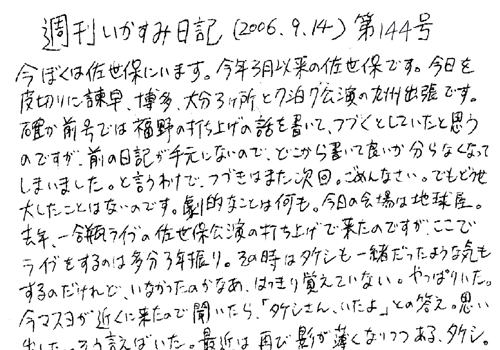 週刊いかすみ日記 (2006.9.14) 第144号
今ぼくは佐世保にいます。今年3月以来の佐世保です。今日を
皮切りに諫早、博多、大分3ヶ所、と7泊7公演の九州出張です。
確か前号では福野の打ち上げの話を書いて、つづくとしていたと思う
のですが、前の日記が手元にないので、どこから書いて良いか分らなくなって
しまいました。と言うわけで、つづきはまた次回。ごめんなさい。でもどうせ
大したことはないのです。劇的なことは何も。今日の会場は地球屋。
去年、一合瓶ライブの佐世保公演の打ち上げで来たのですが、ここで
ライブをするのは多分3年振り。その時はタケシも一緒だったような気も
するのだけれど、いなかったのかなあ、はっきり覚えていない。やっぱりいた。
今マスヨが近くに来たので聞いたら、「タケシさん、いたよ」との答え。思い
出した。そう言えばいた。最近は再び影が薄くなりつつある、タケシ。